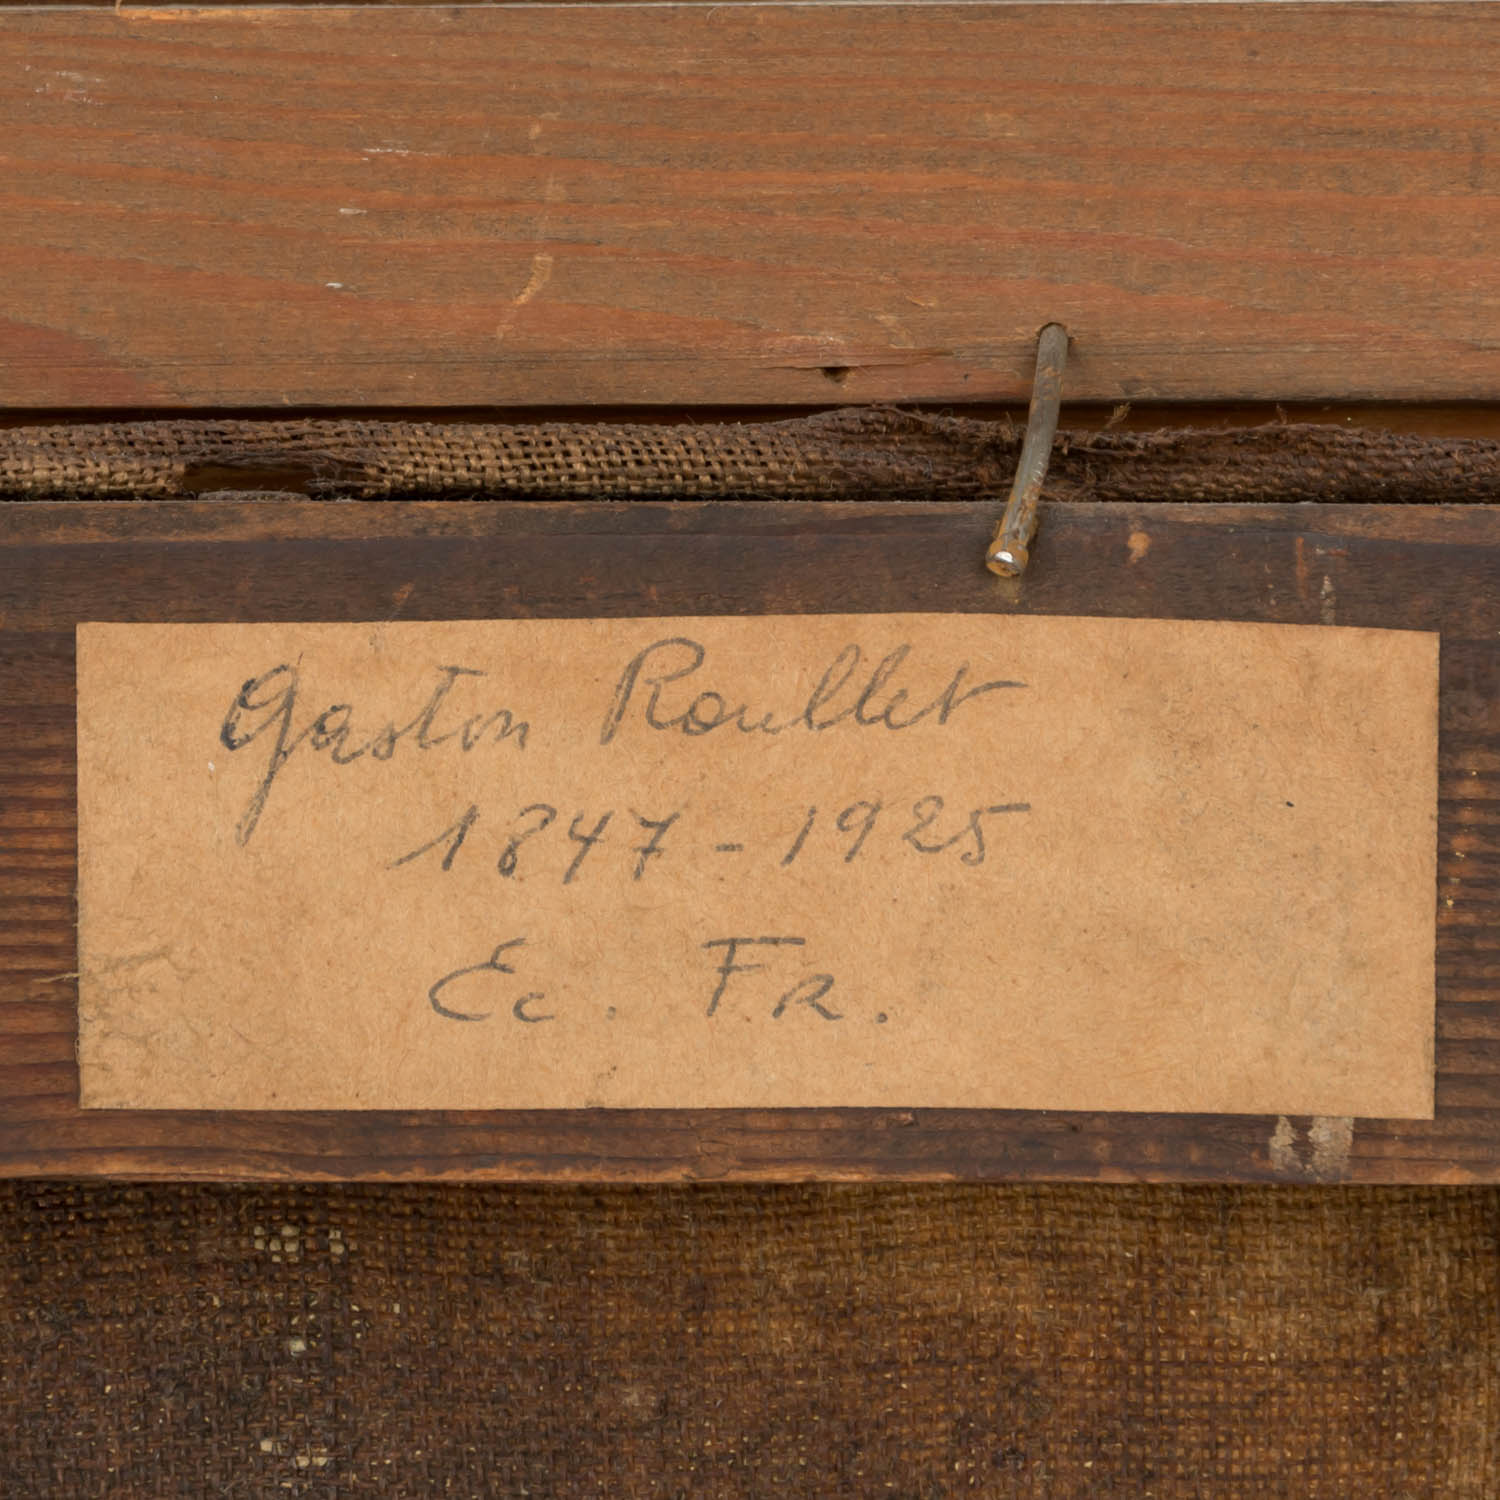 Gaston Roullet
1847 - 1925
Ec. FR.